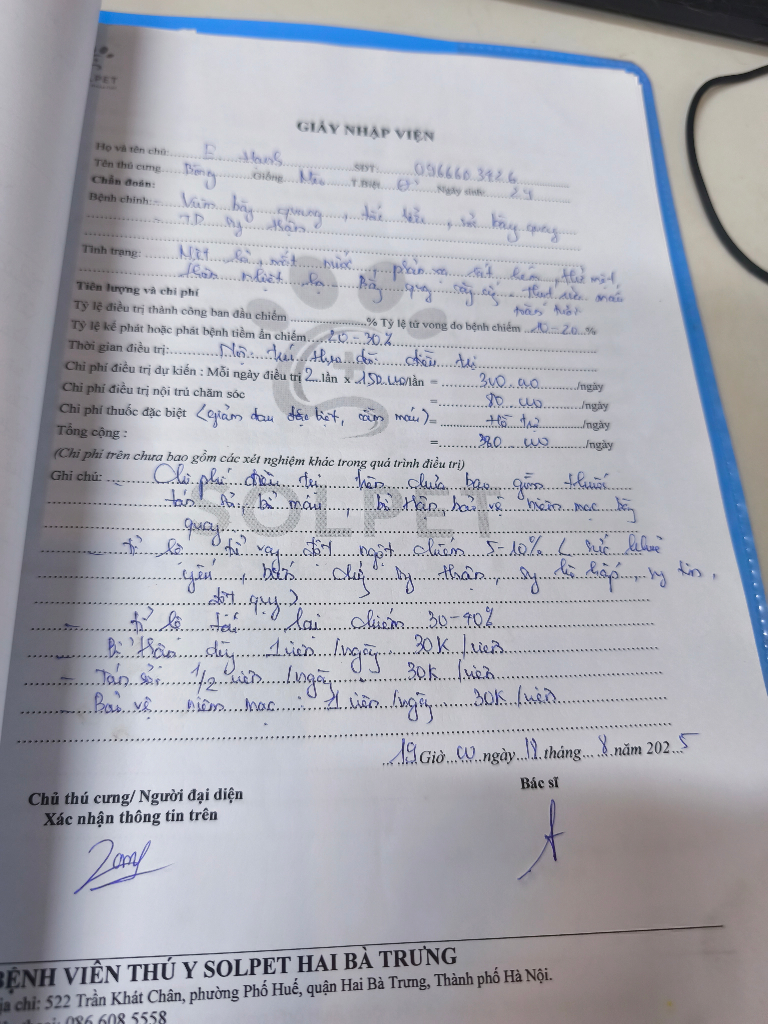 LPET
GIẤY NHẬP VIỆN
Họ và tên chủ: E Hang SĐT: 0966603426
Tên thú cưng Bông Giống Mèo T.Biệt Ngày sinh: 2t
Chẩn đoán:
Bệnh chính: Viêm bàng quang, tắc tiểu, sỏi bàng quang
T.D suy thận
Tình trạng: mất nước, phản xạ rất kém,
thân nhiệt hạ
Tiên lượng và chi phí
Tỷ lệ điều trị thành công ban đầu chiếm % Tỷ lệ tử vong do bệnh chiếm 10-20 %
Tỷ lệ kế phát hoặc phát bệnh tiềm ẩn chiếm 20-30%
Thời gian điều trị: Nội trú theo dõi điều trị
Chi phí điều trị dự kiến : Mỗi ngày điều trị 2 lần x 150.000/lần = 300.000 /ngày
Chi phí điều trị nội trú chăm sóc = 80 000 /ngày
Chi phí thuốc đặc biệt (giảm đau đặc biệt, cầm máu) = Hỗ trợ /ngày
Tổng cộng : = 380 000 /ngày
(Chi phí trên chưa bao gồm các xét nghiệm khác trong quá trình điều trị)
Ghi chú: Chi phí điều trị trên chưa bao gồm thuốc
tán sỏi, bổ máu, bổ thận, bảo vệ niêm mạc bàng
quang
SOLPET
- tỉ lệ tử vong đột ngột chiếm 5-10% ( sức khỏe
yếu, biến chứng suy thận, suy hô hấp, suy tim,
đột quỵ)
- tỉ lệ tái lại chiếm 30-40%
- Bổ thận dùng 1 viên /ngày 30K /viên
- Tán sỏi 1/2 viên /ngày 30K /viên
- Bảo vệ niêm mạc : 1 viên /ngày 30K /viên
19 Giờ 00 ngày 18 tháng 8 năm 2025
Chủ thú cưng/ Người đại diện Bác sĩ
Xác nhận thông tin trên
BỆNH VIỆN THÚ Y SOLPET HAI BÀ TRƯNG
Địa chỉ: 522 Trần Khát Chân, phường Phố Huế, quận Hai Bà Trưng, Thành phố Hà Nội.
086 608 5558